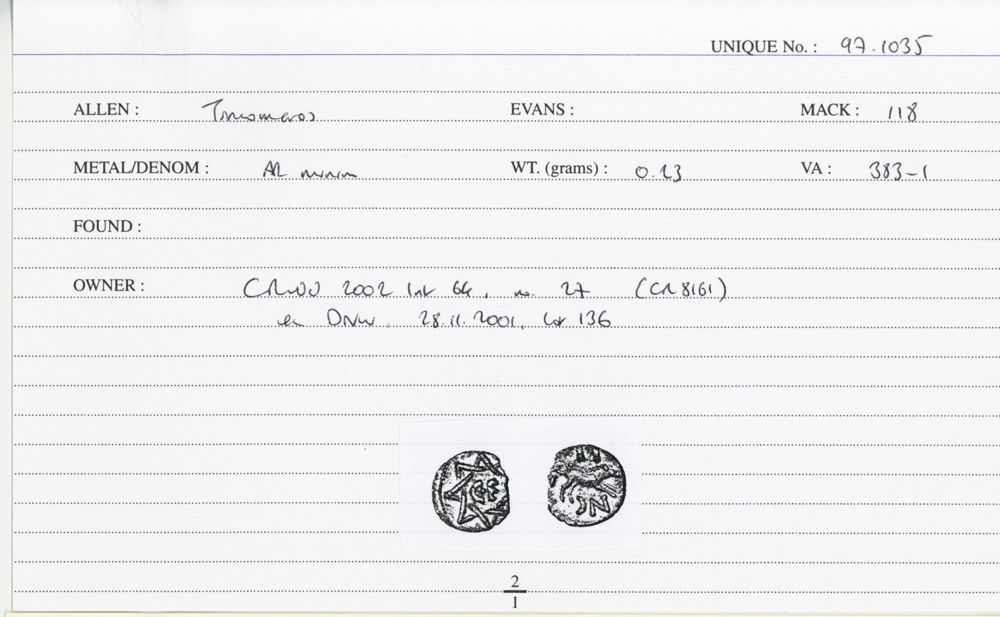 UNIQUE No. : 97.1035
ALLEN : EVANS : MACK : 118
METAL/DENOM : AR minim WT. (grams) : 0.23 VA : 383-1
FOUND :
OWNER : 2002 64, no. 27 (CR 8161)
ex DNW. 28.11.2001, lot 136
2
1